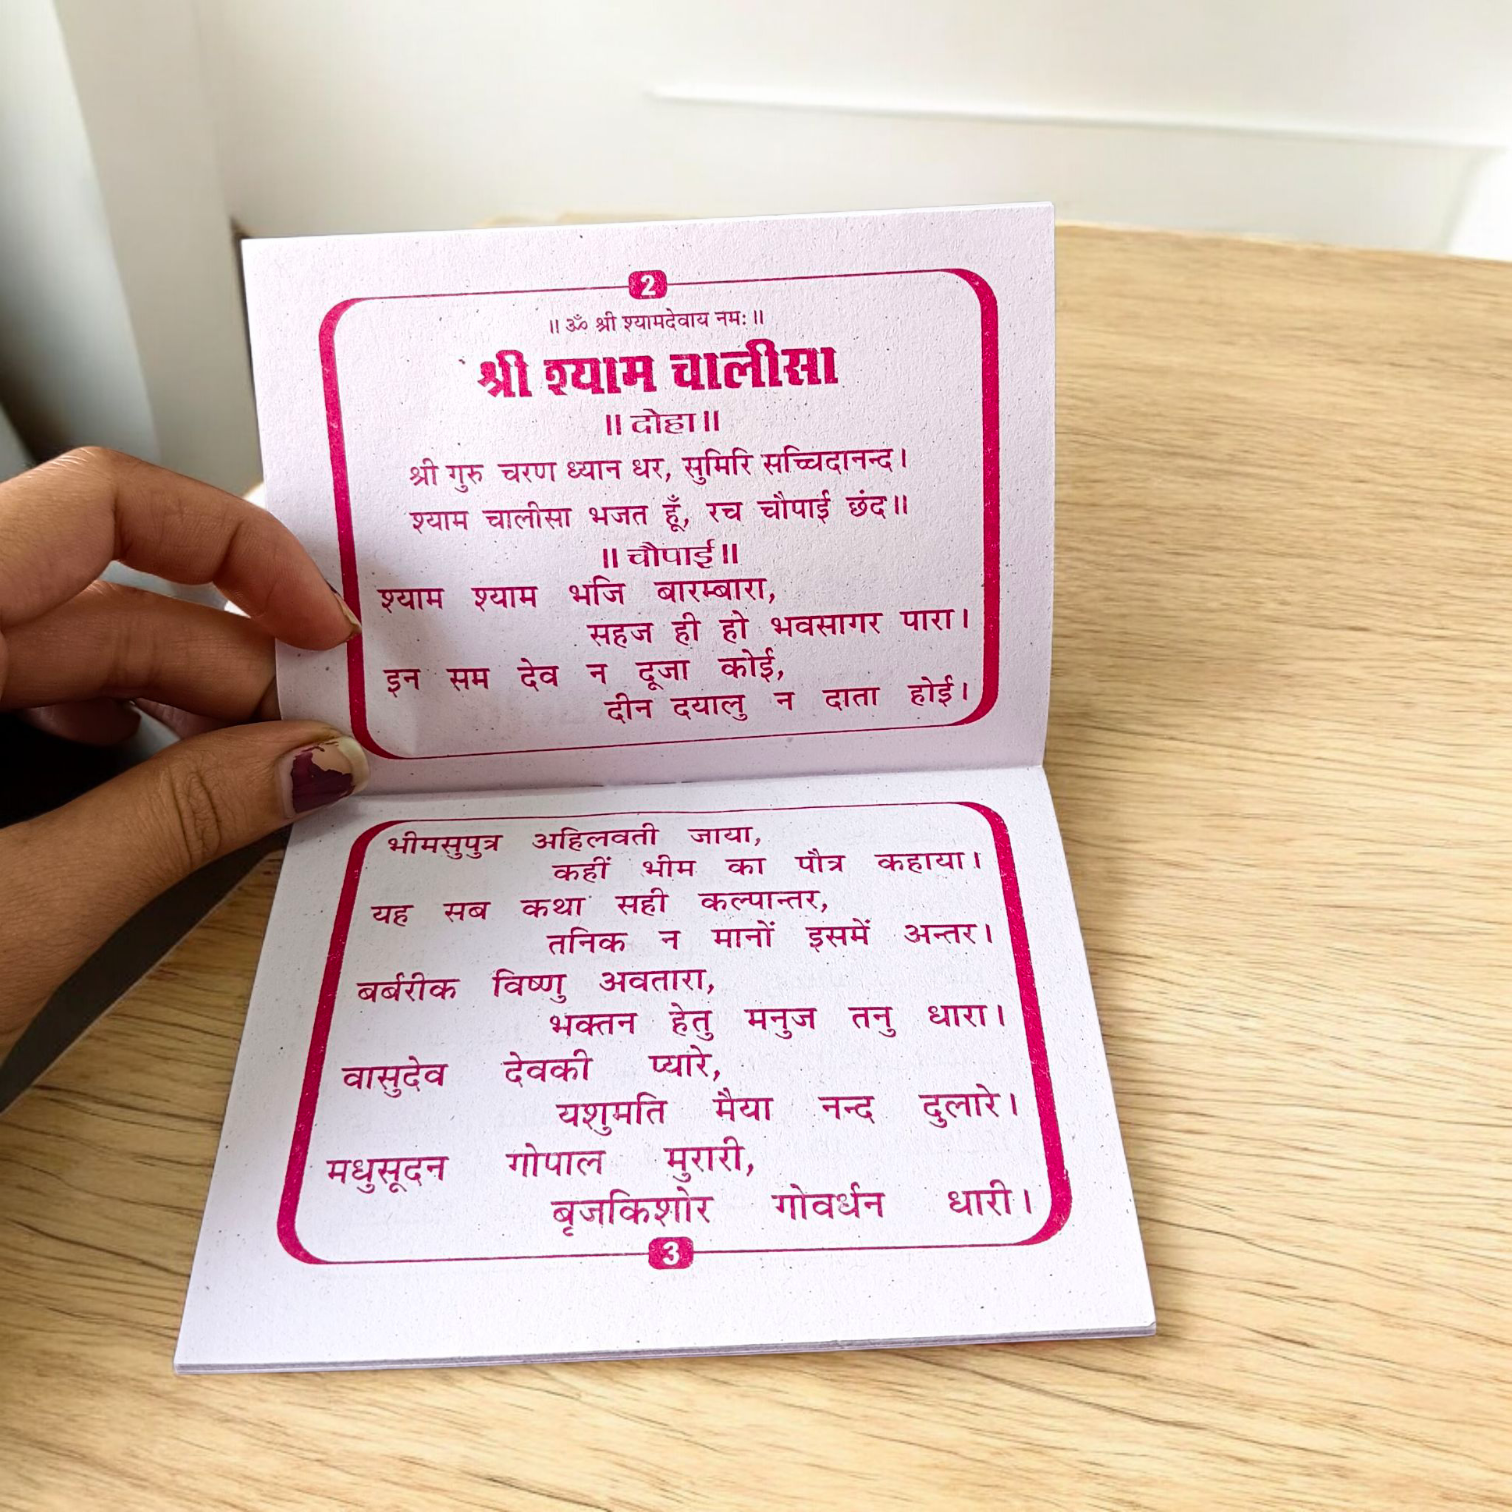 2
॥ ॐ श्री श्यामदेवाय नमः ॥
श्री श्याम चालीसा
॥ दोहा ॥
श्री गुरु चरण ध्यान धर, सुमिरि सच्चिदानन्द।
श्याम चालीसा भजत हूँ, रच चौपाई छंद॥
॥ चौपाई ॥
श्याम श्याम भजि बारम्बारा,
सहज ही हो भवसागर पारा।
इन सम देव न दूजा कोई,
दीन दयालु न दाता होई।
भीमसुपुत्र अहिलवती जाया,
कहीं भीम का पौत्र कहाया।
यह सब कथा सही कल्पान्तर,
तनिक न मानों इसमें अन्तर।
बर्बरीक विष्णु अवतारा,
भक्तन हेतु मनुज तनु धारा।
वासुदेव देवकी प्यारे,
यशुमति मैया नन्द दुलारे।
मधुसूदन गोपाल मुरारी,
बृजकिशोर गोवर्धन धारी।
3